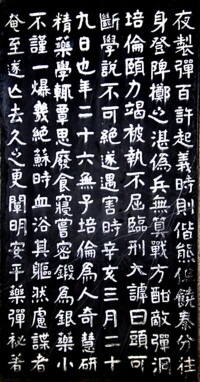 夜製彈百許起義時則偕熊但饒秦分往
身登陴擲之湛偽兵無算戰方酣敵彈洞
培倫頤力竭被執不屈臨刑大謔曰頭可
斷學說不可絕遂遇害時辛亥三月二十
九日也年二十六無子培倫為人奇慧研
精藥學輒覃思廢食寢嘗密鍛為銀藥小
不謹一爆幾絕蘇時血浴其軀然慮諜者
奄至遂亡去久之更闡明安平藥彈祕著